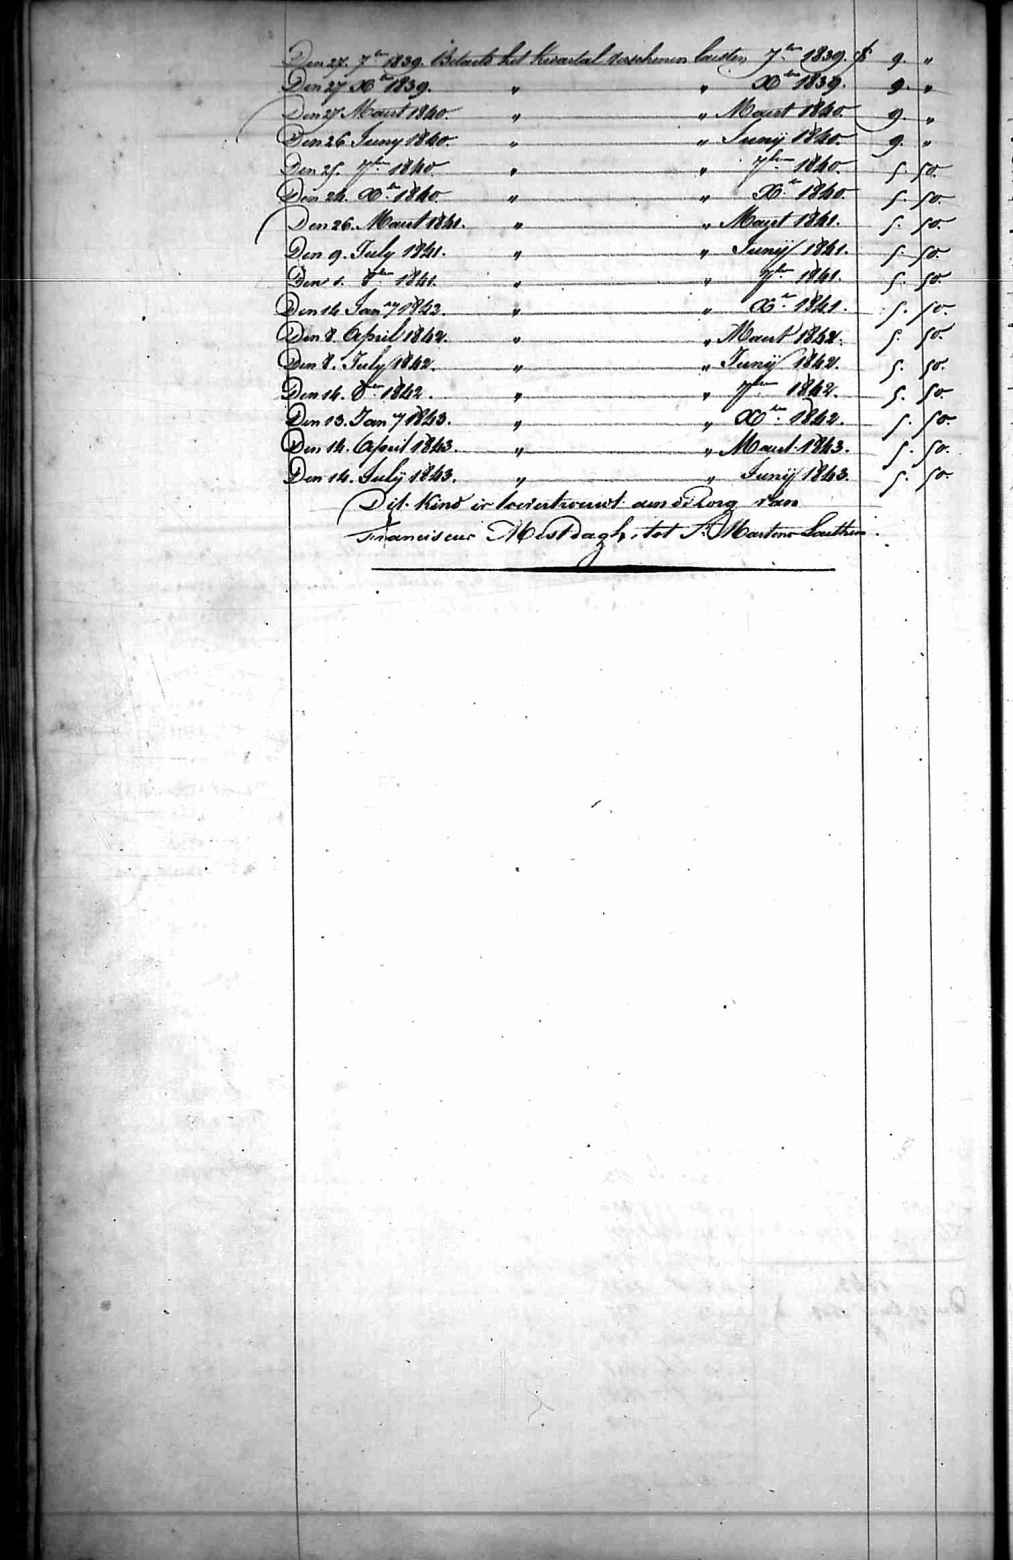 Den 27. 7ber 1839. Betaelt het kwartal verschenen lasten 7ber 1839. f 9. "
Den 27 Xber 1839. " " Xber 1839. 9. "
Den 27 Maert 1840. " " Maert 1840. 9. "
Den 26 Juny 1840. " " Junij 1840. 9. "
Den 25. 7ber 1840. " " 7ber 1840. 5. 50.
Den 24. Xber 1840. " " Xber 1840. 5. 50.
Den 26. Maert 1841. " " Maert 1841. 5. 50.
Den 9. July 1841. " " Junij 1841. 5. 50.
Den 1. 8ber 1841. " " 7ber 1841. 5. 50.
Den 14 Jany 1842. " " Xber 1841. 5. 50.
Den 8. April 1842. " " Maert 1842. 5. 50.
Den 8. July 1842. " " Junij 1842. 5. 50.
Den 14. 8ber 1842. " " 7ber 1842. 5. 50.
Den 13. Jany 1843. " " Xber 1842. 5. 50.
Den 14. April 1843. " " Maert 1843. 5. 50.
Den 14. Julij 1843. " " Junij 1843. 5. 50.
Dit Kind is toevertrouwt aen de Zorg van
Franciscus MestDagh, tot St Martens Lauthem.